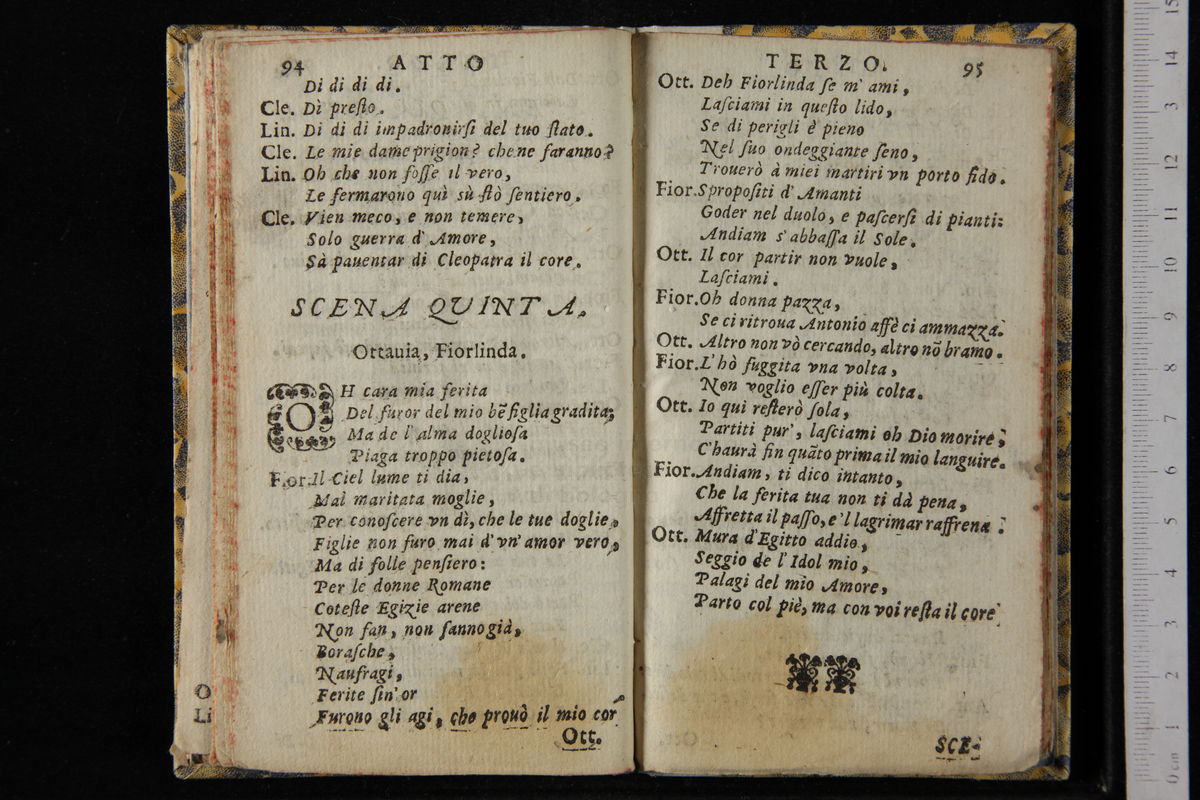 94 ATTO
Di di di di.
Cle. Dì preſto.
Lin. Di di di impadronirſi del tuo ſtato.
Cle. Le mie dame prigion? che ne faranno?
Lin. Oh che non foſſe il vero,
Le fermarono quì sù ſtò ſentiero.
Cle. Vien meco, e non temere,
Solo guerra d' Amore,
Sà pauentar di Cleopatra il core.
SCENA QUINTA.
Ottauia, Fiorlinda.
OH cara mia ferita
Del furor del mio bẽ figlia gradita;
Ma de l' alma doglioſa
Piaga troppo pietoſa.
Fior. Il Ciel lume ti dia,
Mal maritata moglie,
Per conoſcere vn dì, che le tue doglie,
Figlie non furo mai d' vn' amor vero,
Ma di folle penſiero:
Per le donne Romane
Coteſte Egizie arene
Non fan, non fanno già,
Boraſche,
Naufragi,
Ferite ſin' or
Furono gli agi, che prouò il mio cor
Ott.
TERZO. 95
Ott. Deh Fiorlinda ſe m' ami,
Laſciami in queſto lido,
Se di perigli è pieno
Nel ſuo ondeggiante ſeno,
Trouerò à miei martiri vn porto fido.
Fior. Spropoſiti d' Amanti
Goder nel duolo, e paſcerſi di pianti:
Andiam s' abbaſſa il Sole.
Ott. Il cor partir non vuole,
Laſciami.
Fior. Oh donna pazza,
Se ci ritroua Antonio affè ci ammazza.
Ott. Altro non vò cercando, altro nõ bramo.
Fior. L' hò fuggita vna volta,
Non voglio eſſer più colta.
Ott. Io qui reſterò ſola,
Partiti pur', laſciami oh Dio morire;
C'haurà fin quãto prima il mio languire.
Fior. Andiam, ti dico intanto,
Che la ferita tua non ti dà pena,
Affretta il paſſo, e 'l lagrimar raffrena.
Ott. Mura d'Egitto addio,
Seggio de l' Idol mio,
Palagi del mio Amore,
Parto col piè, ma con voi reſta il core.
SCE-
O
Li